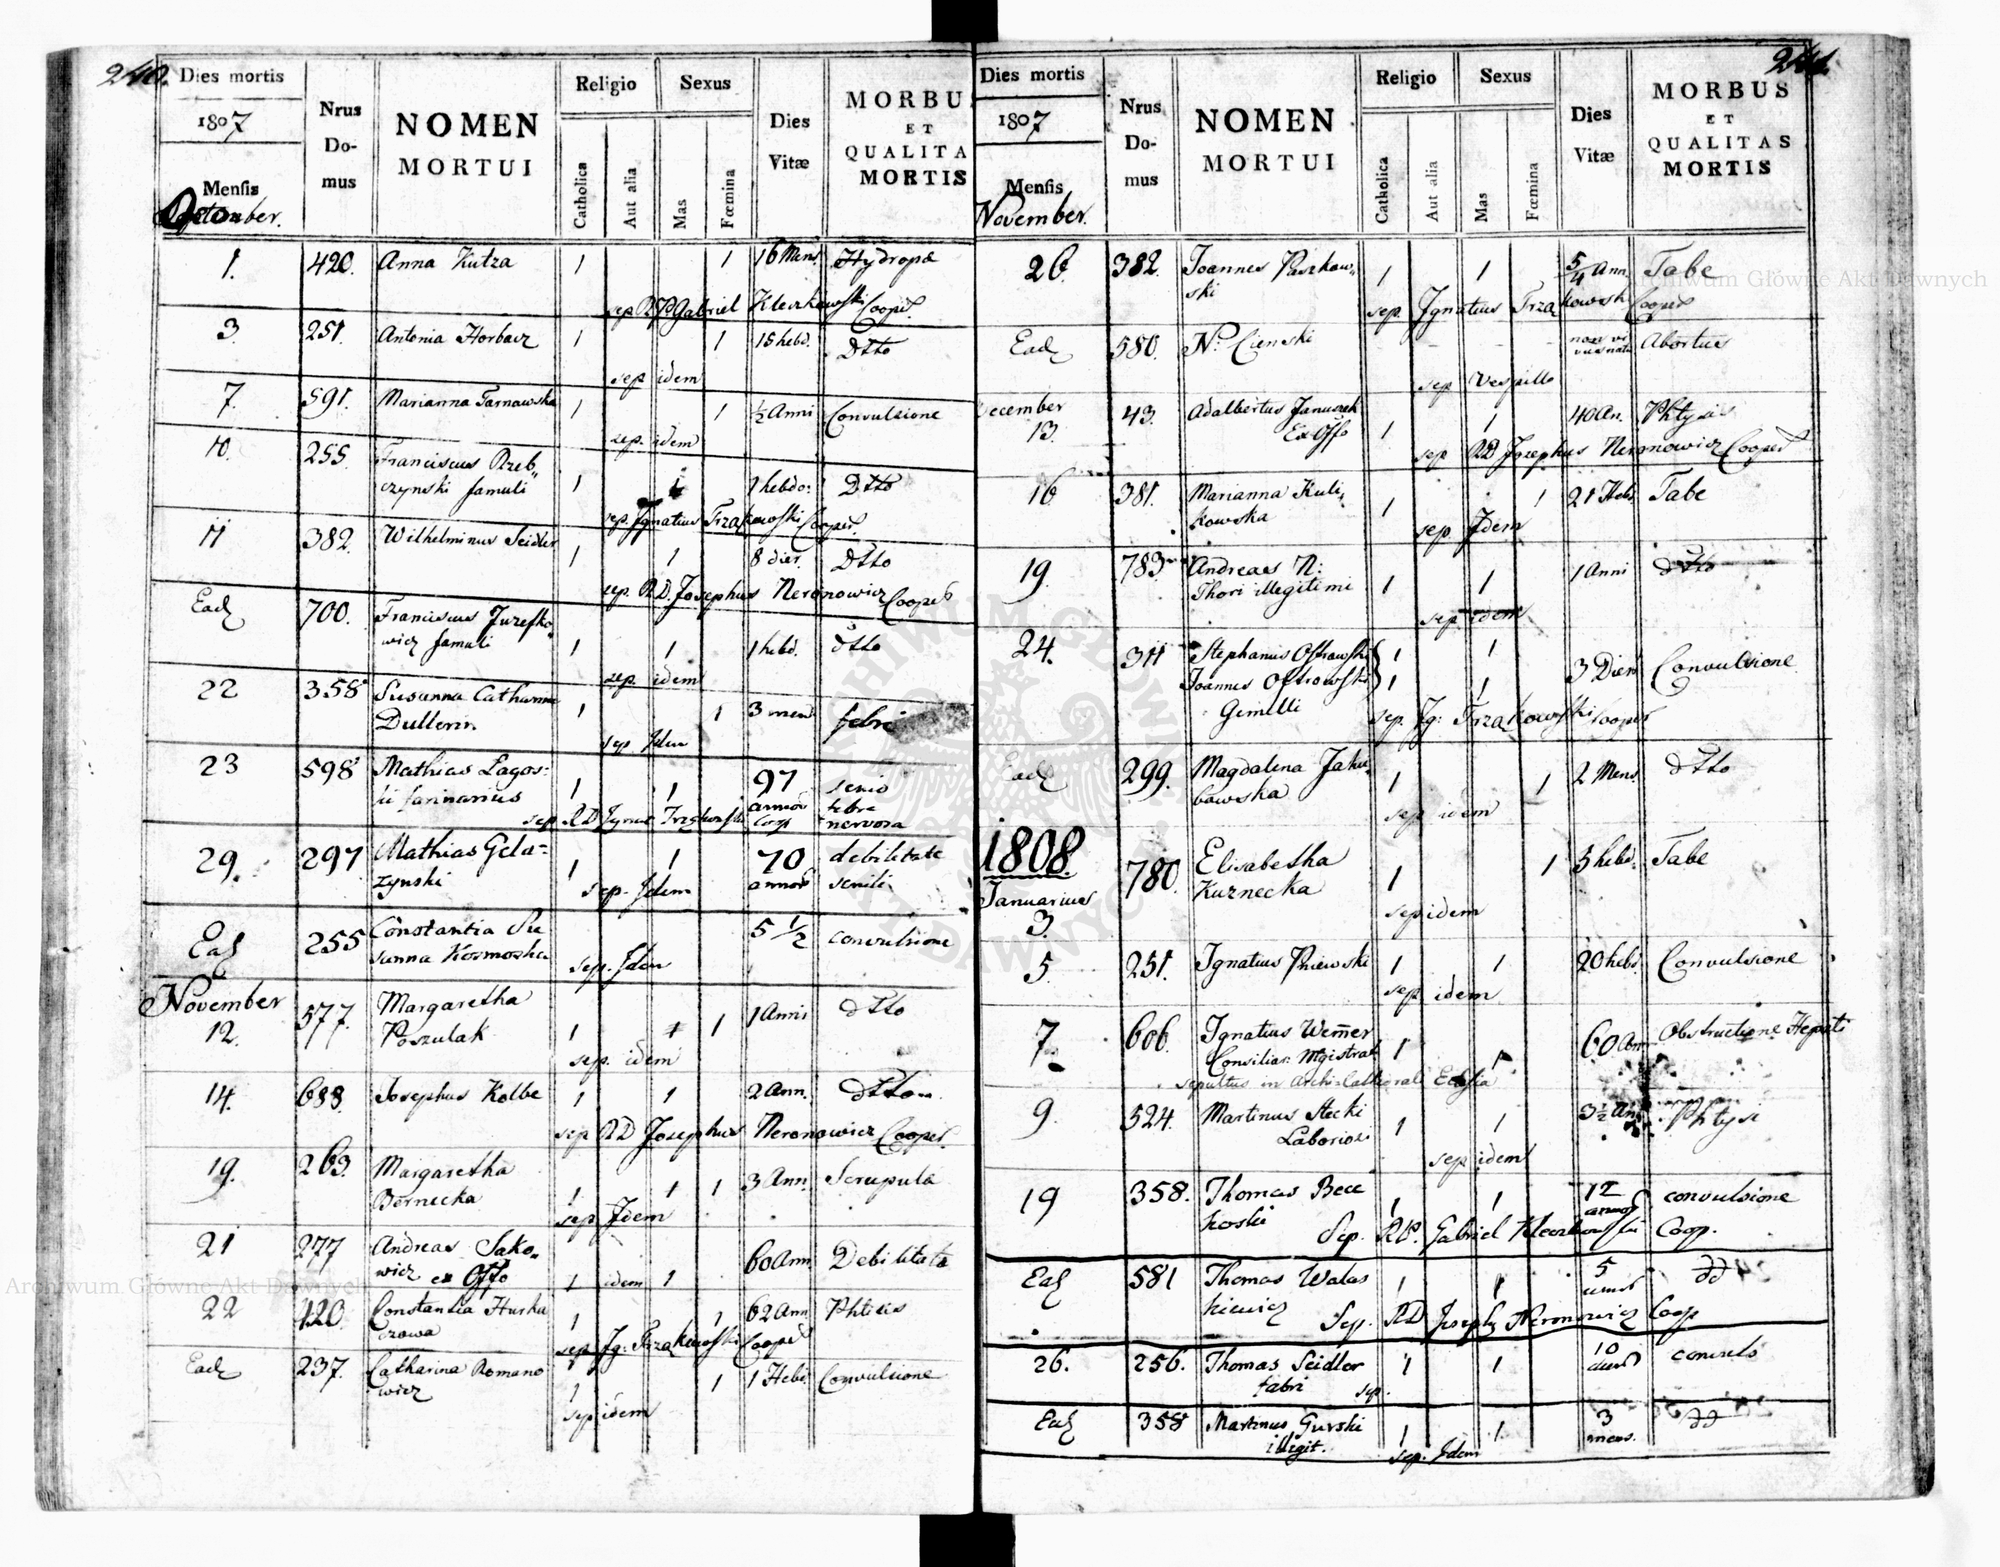 240.
Dies mortis
1807
Mensis
October.
Nrus Domus
NOMEN
MORTUI
Religio
Catholica
Aut alia
Sexus
Mas
Fœmina
Dies
Vitæ
MORBU
ET
QUALITA
MORTIS
1. 420. Anna Kutza 1 1 16 Mens. Hydropæ
sep. RP Gabriel Kleczkowski Cooper.
3. 251. Antonia Horbacz 1 1 15 hebd. Dtto
sep idem
7. 591. Marianna Tarnawska 1 1 ½ Anni Convulsione
sep. idem
10. 255. Franciscus Rzeb„
czynski famuli 1 1 1 hebdo: Dtto
sep. Ignatius Trzakowski Cooper.
11 382. Wilhelminus Seidler 1 1 8 dier. Dtto
sep. RD. Josephus Neronowicz Cooper
Ead 700. Franciscus Juzefko„
wicz famuli 1 1 1 hebd. dtto
sep. idem
22 358 Susanna Catharina
Dullerin 1 1 3 mens febri
sep Idem
23 598 Mathias Lagos:
ki farinarius 1 1 97 annor senio febre nervosa
sep RD Ignat Trzakowski Coop
29. 297 Mathias Gela=
zynski 1 1 70 annor debilitate senili
sep. Idem
Ead 255 Constantia Su
sanna Kosmoska 5 ½ convulsione
sep. Idem
November
12. 577. Margaretha
Poszulak 1 1 1 1 Anni dtto
sep. idem
14. 688. Josephus Kolbe 1 1 2 Ann. dtto
sep RD Josephus Neronowicz Cooper.
19. 263. Margaretha
Bernecka 1 1 1 3 Ann. Scrupula
sep Idem
21 277 Andreas Sako„
wicz ex Offo 1 idem 1 60 Ann Debilitate
22 420. Constantia Huska
czowa 1 1 62 Ann Phtisis
sep Ig: Trzakowski Cooper
Ead 237. Catharina Romano
wicz 1 1 1 Hebd Convulsione
sep idem
241.
Dies mortis
1807
Mensis
November.
Nrus Domus
NOMEN
MORTUI
Religio
Catholica
Aut alia
Sexus
Mas
Fœmina
Dies
Vitæ
MORBUS
ET
QUALITAS
MORTIS
26 382. Joannes Paszkow„
ski 1 1 5/4 Ann. Tabe
sep. Ignatius Trzakowski Cooper
Ead 580. N: Cienski non vi
vus natus Abortus
sep Vespillo
December
13. 43. Adalbertus Januszek
Ex Offo 1 1 40 An. Phtysis
sep RD Josephus Neronowicz Cooper
16 381. Marianna Kuli„
kowska 1 1 21 Heb. Tabe
sep Idem
19. 783 Andreas N:
Thori illegitimi 1 1 1 Anni dtto
sep idem
24. 311 Stephanus Ostrowski 1 1
Joannes Ostrowski 1 1 3 Dier Convulsione
Gemelli
sep. Ig: Trzakowski Cooper
Ead 299. Magdalena Jaku„
bowska 1 1 2 Mens dtto
sep idem
1808.
Januarius
3. 780. Elisabetha
Kuznecka 1 1 3 hebd. Tabe
sep idem
5 251. Ignatius Pniewski 1 1 20 hebd Convulsione
sep idem
7. 606. Ignatius Wemer
Consiliar: Mgistrat 1 1 60 Ann Obstructione Hepati
sepultus in Archi-Cathedrali Eclesia
9. 524. Martinus Stecki
Laboriosi 1 1 3½ An Phtysi
sep idem
19 358. Thomas Bece
koski 1 1 12 annor convulsione
Sep. RP. Gabriel Kleczkowski Coop.
Ead 581 Thomas Walas
kiewicz 1 1 5 dd
Sep. RD Joseph Neronowicz Coop
26. 256. Thomas Seidler
fabri 1 1 10 dier convuls
sep.
Ead 358 Martinus Gurski
illegit. 1 1 3 mens. dd
sep. Idem
Archiwum Główne Akt Dawnych
Archiwum Główne Akt Dawnych
ARCHIWUM GŁÓWNE AKT DAWNYCH